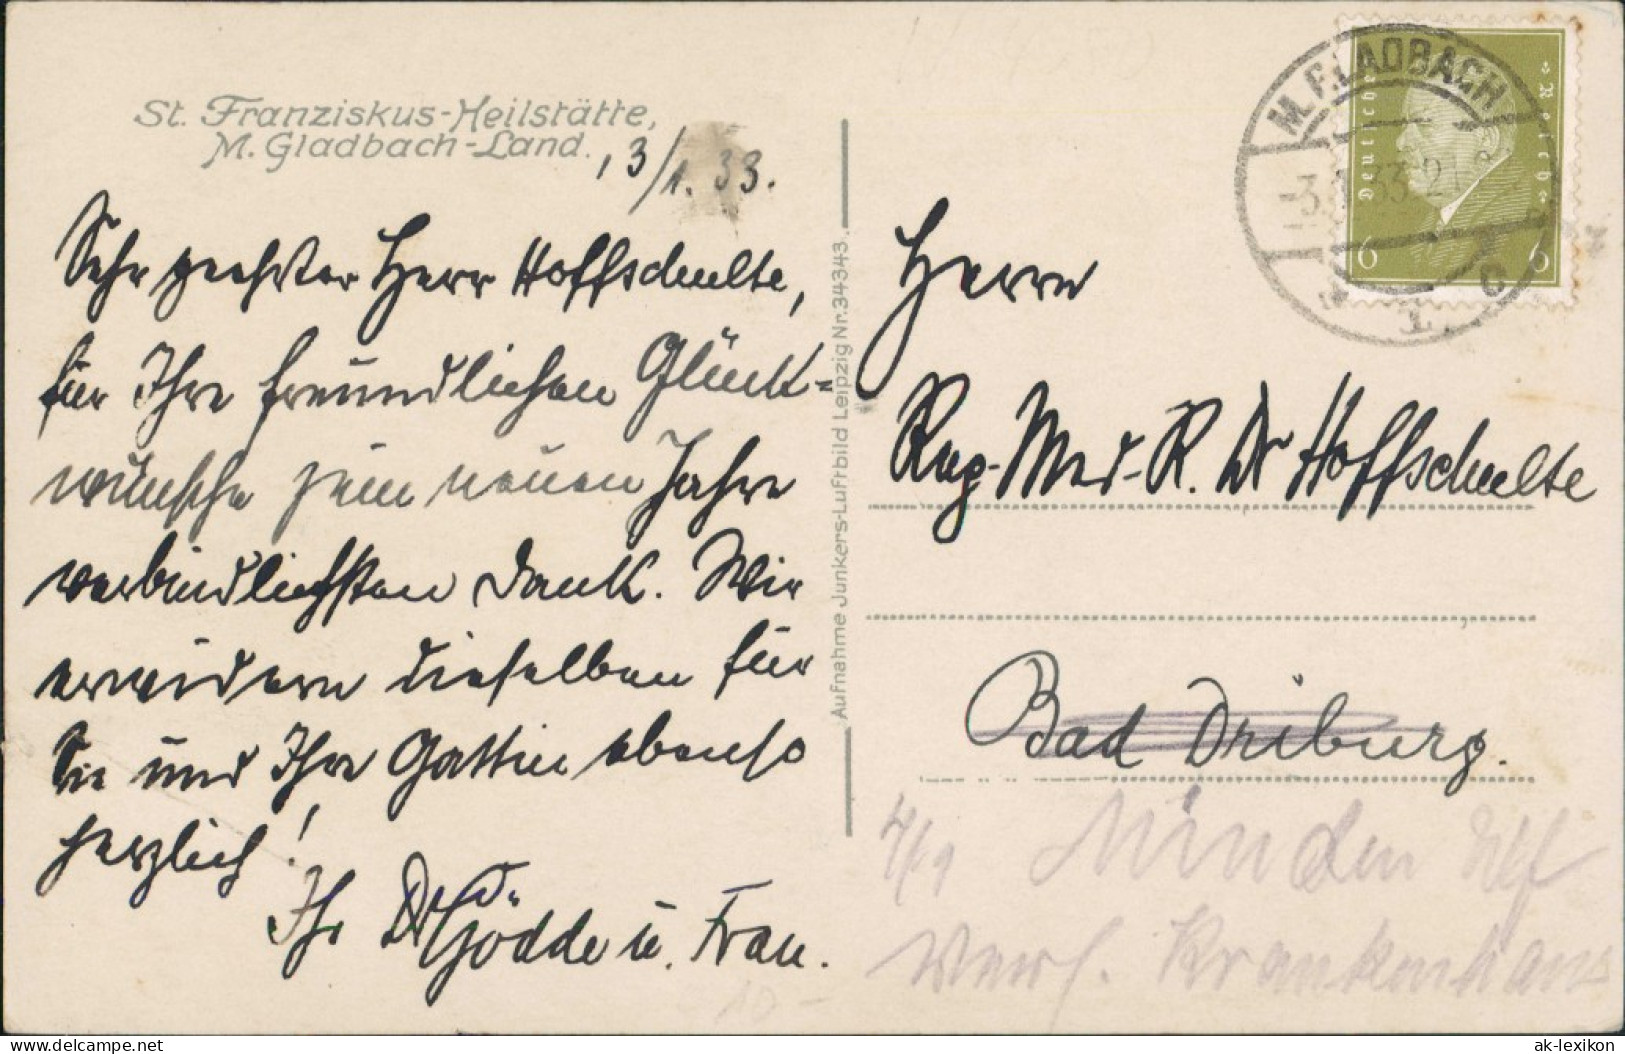 St. Franziskus-Heilstätte,
M. Gladbach-Land.
, 3/1. 33.
Sehr geehrter Herr Hoffschulte,
für Ihre freundlichen Glück-
wünsche zum neuen Jahre
verbindlichsten Dank. Wir
erwidern dieselben für
Sie und Ihre Gattin ebenso
herzlich!
Ihr Dr Gödde u. Frau.
Aufnahme Junkers-Luftbild Leipzig Nr. 34343.
M. GLADBACH
-3.1.33.21
1 c
Deutsches Reich
6 6
Herrn
Reg-Med-R. Dr Hoffschulte
Bad Driburg.
4/1 Minden Wf
Krankenhaus
delcampe.net
ak-lexikon